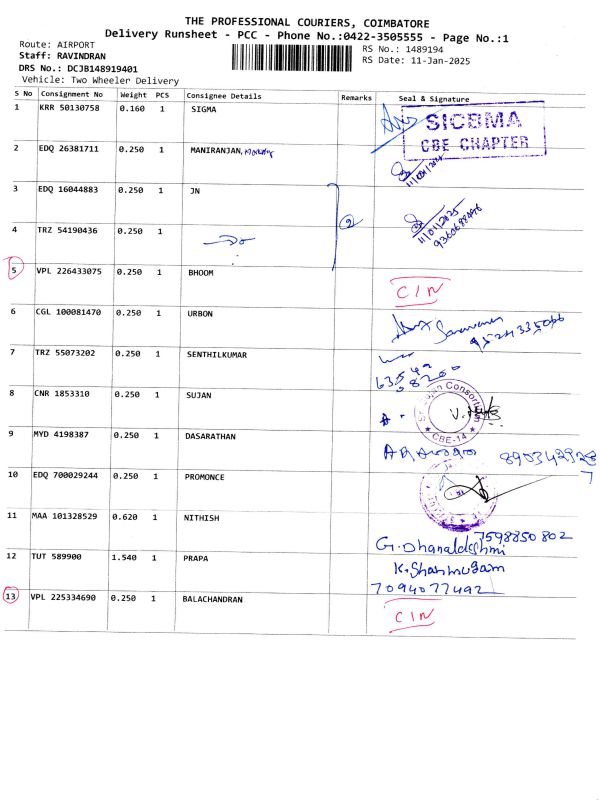 THE PROFESSIONAL COURIERS, COIMBATORE
Delivery Runsheet - PCC - Phone No.:0422-3505555 - Page No.:1
Route: AIRPORT
Staff: RAVINDRAN
DRS No.: DCJB148919401
Vehicle: Two Wheeler Delivery
RS No.: 1489194
RS Date: 11-Jan-2025
S No Consignment No Weight PCS Consignee Details Remarks Seal & Signature
1 KRR 50130758 0.160 1 SIGMA
SICBMA
CBE CHAPTER
2 EDQ 26381711 0.250 1 MANIRANJAN,
3 EDQ 16044883 0.250 1 JN
2
11/01/2025
9360688496
4 TRZ 54190436 0.250 1
5 VPL 226433075 0.250 1 BHOOM
CIN
6 CGL 100081470 0.250 1 URBON
Saravanan
7 TRZ 55073202 0.250 1 SENTHILKUMAR
8 CNR 1853310 0.250 1 SUJAN
Consortium
CBE-14
9 MYD 4198387 0.250 1 DASARATHAN
10 EDQ 700029244 0.250 1 PROMONCE
11 MAA 101328529 0.620 1 NITHISH
7598850802
G. Dhanalakshmi
12 TUT 589900 1.540 1 PRAPA
K. Shanmugam
7094077492
13 VPL 225334690 0.250 1 BALACHANDRAN
CIN